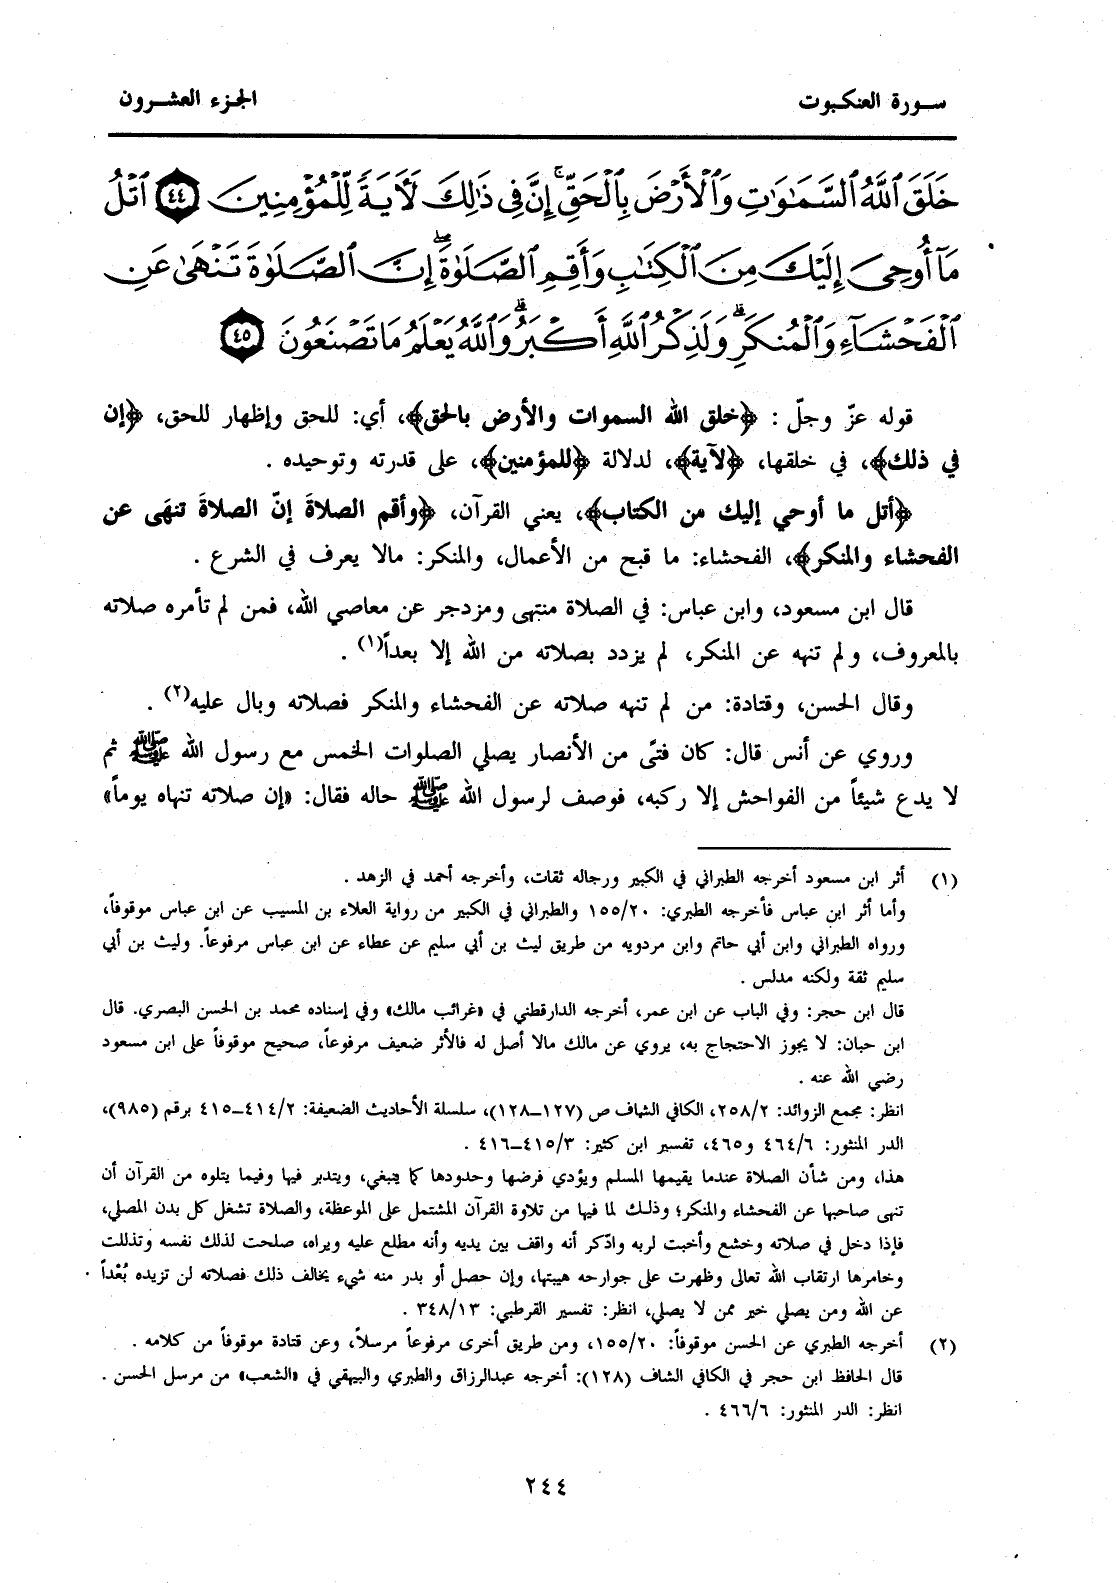 سورة العنكبوت
الجزء العشرون
خَلَقَ ٱللَّهُ ٱلسَّمَٰوَٰتِ وَٱلْأَرْضَ بِٱلْحَقِّ ۚ إِنَّ فِى ذَٰلِكَ لَءَايَةً لِّلْمُؤْمِنِينَ ﴿٤٤﴾ ٱتْلُ
مَآ أُوحِىَ إِلَيْكَ مِنَ ٱلْكِتَٰبِ وَأَقِمِ ٱلصَّلَوٰةَ ۖ إِنَّ ٱلصَّلَوٰةَ تَنْهَىٰ عَنِ
ٱلْفَحْشَآءِ وَٱلْمُنكَرِ ۗ وَلَذِكْرُ ٱللَّهِ أَكْبَرُ ۗ وَٱللَّهُ يَعْلَمُ مَا تَصْنَعُونَ ﴿٤٥﴾
قوله عزّ وجلّ : ﴿خلق الله السموات والأرض بالحق﴾، أي: للحق وإظهار للحق، ﴿إن
في ذلك﴾، في خلقها، ﴿لآية﴾، لدلالة ﴿للمؤمنين﴾، على قدرته وتوحيده .
﴿أتل ما أوحي إليك من الكتاب﴾، يعني القرآن، ﴿وأقم الصلاةَ إنّ الصلاةَ تنهَى عن
الفحشاء والمنكر﴾، الفحشاء: ما قبح من الأعمال، والمنكر: مالا يعرف في الشرع .
قال ابن مسعود، وابن عباس: في الصلاة منتهى ومزدجر عن معاصي الله، فمن لم تأمره صلاته
بالمعروف، ولم تنهه عن المنكر، لم يزدد بصلاته من الله إلا بعداً(١) .
وقال الحسن، وقتادة: من لم تنهه صلاته عن الفحشاء والمنكر فصلاته وبال عليه(٢) .
وروي عن أنس قال: كان فتًى من الأنصار يصلي الصلوات الخمس مع رسول الله ﷺ ثم
لا يدع شيئاً من الفواحش إلا ركبه، فوصف لرسول الله ﷺ حاله فقال: «إن صلاته تنهاه يوماً»
(١) أثر ابن مسعود أخرجه الطبراني في الكبير ورجاله ثقات، وأخرجه أحمد في الزهد .
وأما أثر ابن عباس فأخرجه الطبري: ١٥٥/٢٠ والطبراني في الكبير من رواية العلاء بن المسيب عن ابن عباس موقوفاً،
ورواه الطبراني وابن أبي حاتم وابن مردويه من طريق ليث بن أبي سليم عن عطاء عن ابن عباس مرفوعاً. وليث بن أبي
سليم ثقة ولكنه مدلس .
قال ابن حجر: وفي الباب عن ابن عمر، أخرجه الدارقطني في «غرائب مالك» وفي إسناده محمد بن الحسن البصري. قال
ابن حبان: لا يجوز الاحتجاج به، يروي عن مالك مالا أصل له فالأثر ضعيف مرفوعاً، صحيح موقوفاً على ابن مسعود
رضي الله عنه .
انظر: مجمع الزوائد: ٢٥٨/٢، الكافي الشاف ص (١٢٧–١٢٨)، سلسلة الأحاديث الضعيفة: ٤١٤/٢–٤١٥ برقم (٩٨٥)،
الدر المنثور: ٤٦٤/٦ و٤٦٥، تفسير ابن كثير: ٤١٥/٣–٤١٦ .
هذا، ومن شأن الصلاة عندما يقيمها المسلم ويؤدي فرضها وحدودها كما ينبغي، ويتدبر فيها وفيما يتلوه من القرآن أن
تنهى صاحبها عن الفحشاء والمنكر؛ وذلك لما فيها من تلاوة القرآن المشتمل على الموعظة، والصلاة تشغل كل بدن المصلي،
فإذا دخل في صلاته وخشع وأخبت لربه وادّكر أنه واقف بين يديه وأنه مطلع عليه ويراه، صلحت لذلك نفسه وتذللت
وخامرها ارتقاب الله تعالى وظهرت على جوارحه هيبتها، وإن حصل أو بدر منه شيء يخالف ذلك فصلاته لن تزيده بُعْداً
عن الله ومن يصلي خير ممن لا يصلي، انظر: تفسير القرطبي: ٣٤٨/١٣ .
(٢) أخرجه الطبري عن الحسن موقوفاً: ١٥٥/٢٠، ومن طريق أخرى مرفوعاً مرسلاً، وعن قتادة موقوفاً من كلامه .
قال الحافظ ابن حجر في الكافي الشاف (١٢٨): أخرجه عبدالرزاق والطبري والبيهقي في «الشعب» من مرسل الحسن .
انظر: الدر المنثور: ٤٦٦/٦ .
٢٤٤